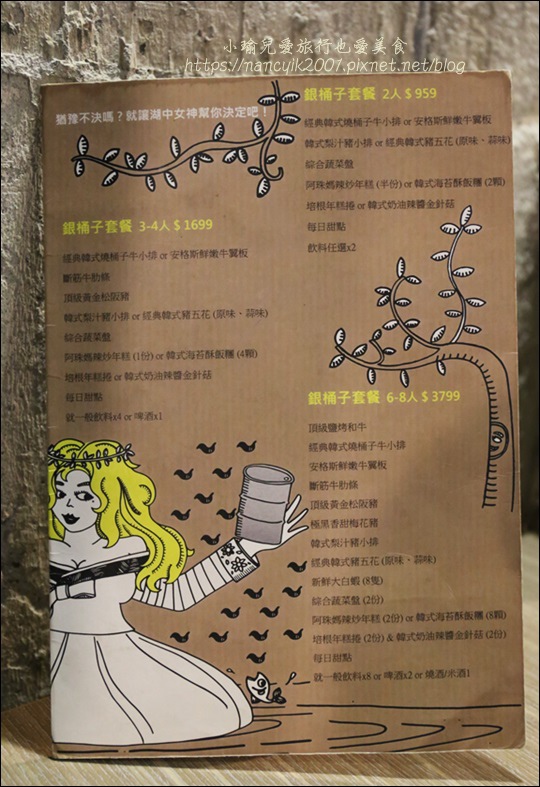 小瑜兒愛旅行也愛美食
https://nancylk2001.pixnet.net/blog
猶豫不決嗎？就讓湖中女神幫你決定吧！
銀桶子套餐 2人 $ 959
經典韓式燒桶子牛小排 or 安格斯鮮嫩牛翼板
韓式梨汁豬小排 or 經典韓式豬五花 (原味、蒜味)
綜合蔬菜盤
阿珠媽辣炒年糕 (半份) or 韓式海苔酥飯糰 (2顆)
培根年糕捲 or 韓式奶油辣醬金針菇
每日甜點
飲料任選x2
銀桶子套餐 3-4人 $ 1699
經典韓式燒桶子牛小排 or 安格斯鮮嫩牛翼板
斷筋牛肋條
頂級黃金松阪豬
韓式梨汁豬小排 or 經典韓式豬五花 (原味、蒜味)
綜合蔬菜盤
阿珠媽辣炒年糕 (1份) or 韓式海苔酥飯糰 (4顆)
培根年糕捲 or 韓式奶油辣醬金針菇
每日甜點
就一般飲料x4 or 啤酒x1
銀桶子套餐 6-8人 $ 3799
頂級鹽烤和牛
經典韓式燒桶子牛小排
安格斯鮮嫩牛翼板
斷筋牛肋條
頂級黃金松阪豬
極黑香甜梅花豬
韓式梨汁豬小排
經典韓式豬五花 (原味、蒜味)
新鮮大白蝦 (8隻)
綜合蔬菜盤 (2份)
阿珠媽辣炒年糕 (2份) or 韓式海苔酥飯糰 (8顆)
培根年糕捲 (2份) & 韓式奶油辣醬金針菇 (2份)
每日甜點
就一般飲料x8 or 啤酒x2 or 燒酒/米酒1